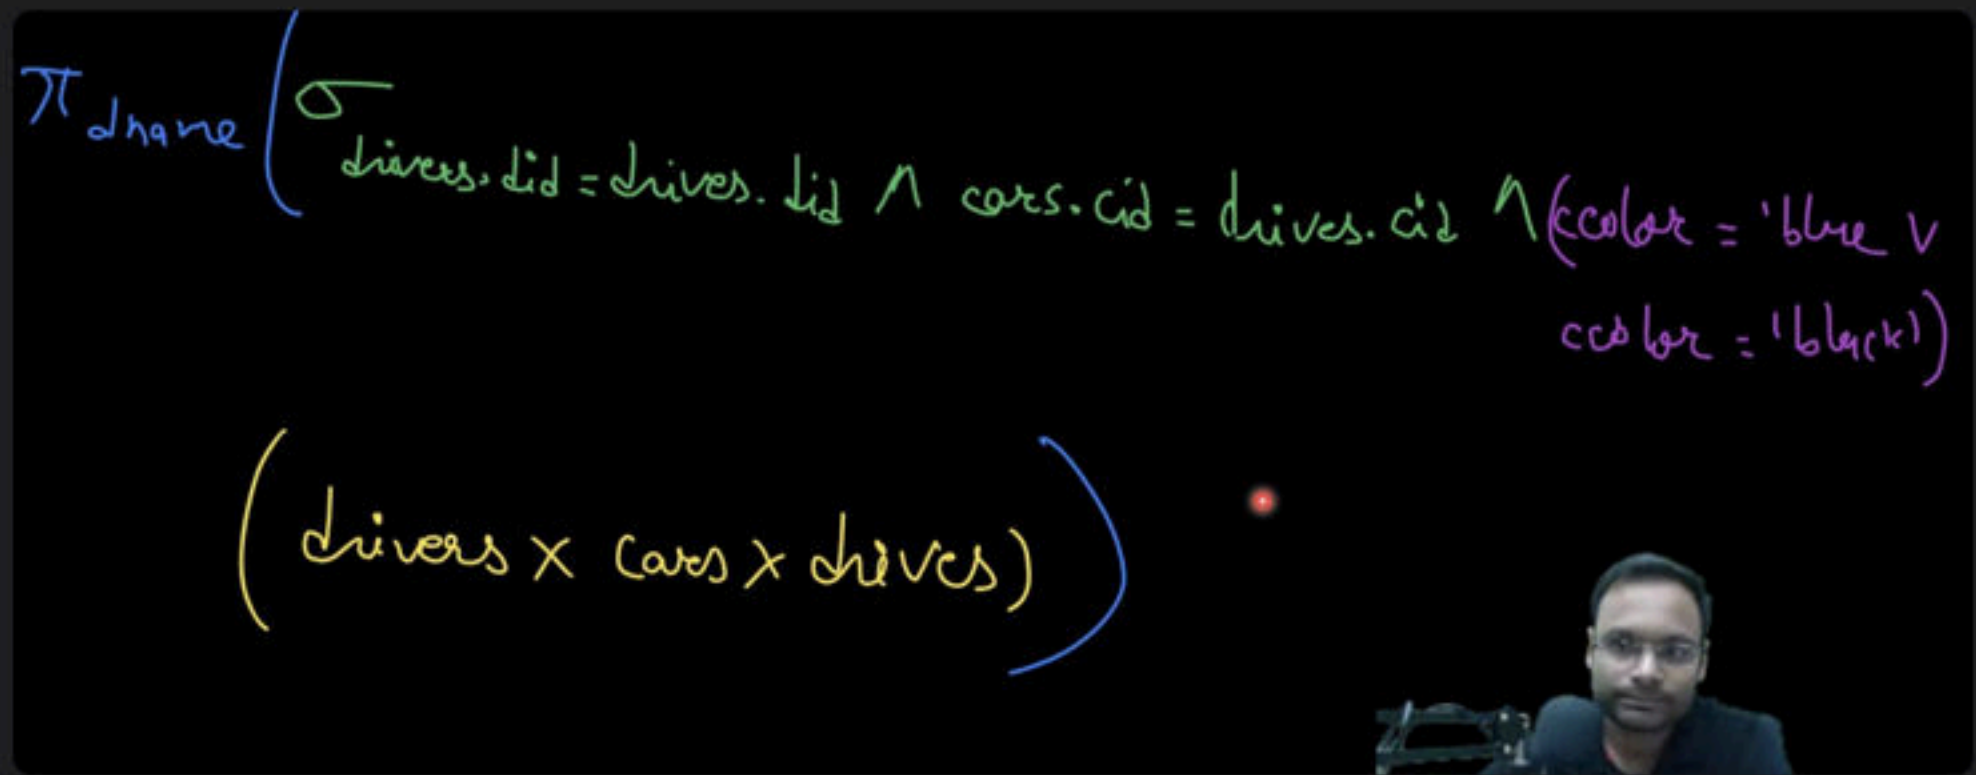 π dname ( σ drivers.did = drives.did ∧ cars.cid = drives.cid ∧ (ccolor = 'blue ∨
ccolor = 'black')
(drivers × cars × drives) )